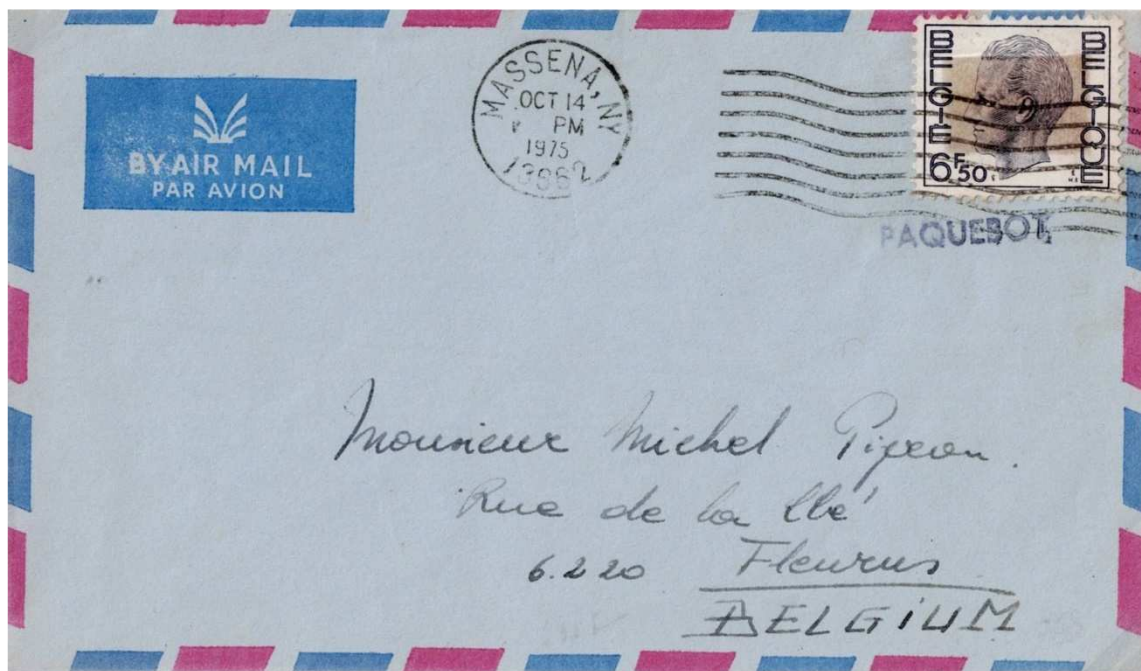 BY AIR MAIL
PAR AVION
MASSENA, NY
OCT 14
PM
1975
13662
BELGIE
BELGIQUE
6F50
PAQUEBOT
Monsieur Michel Pigeon.
Rue de la
6.220 Fleurus
BELGIUM